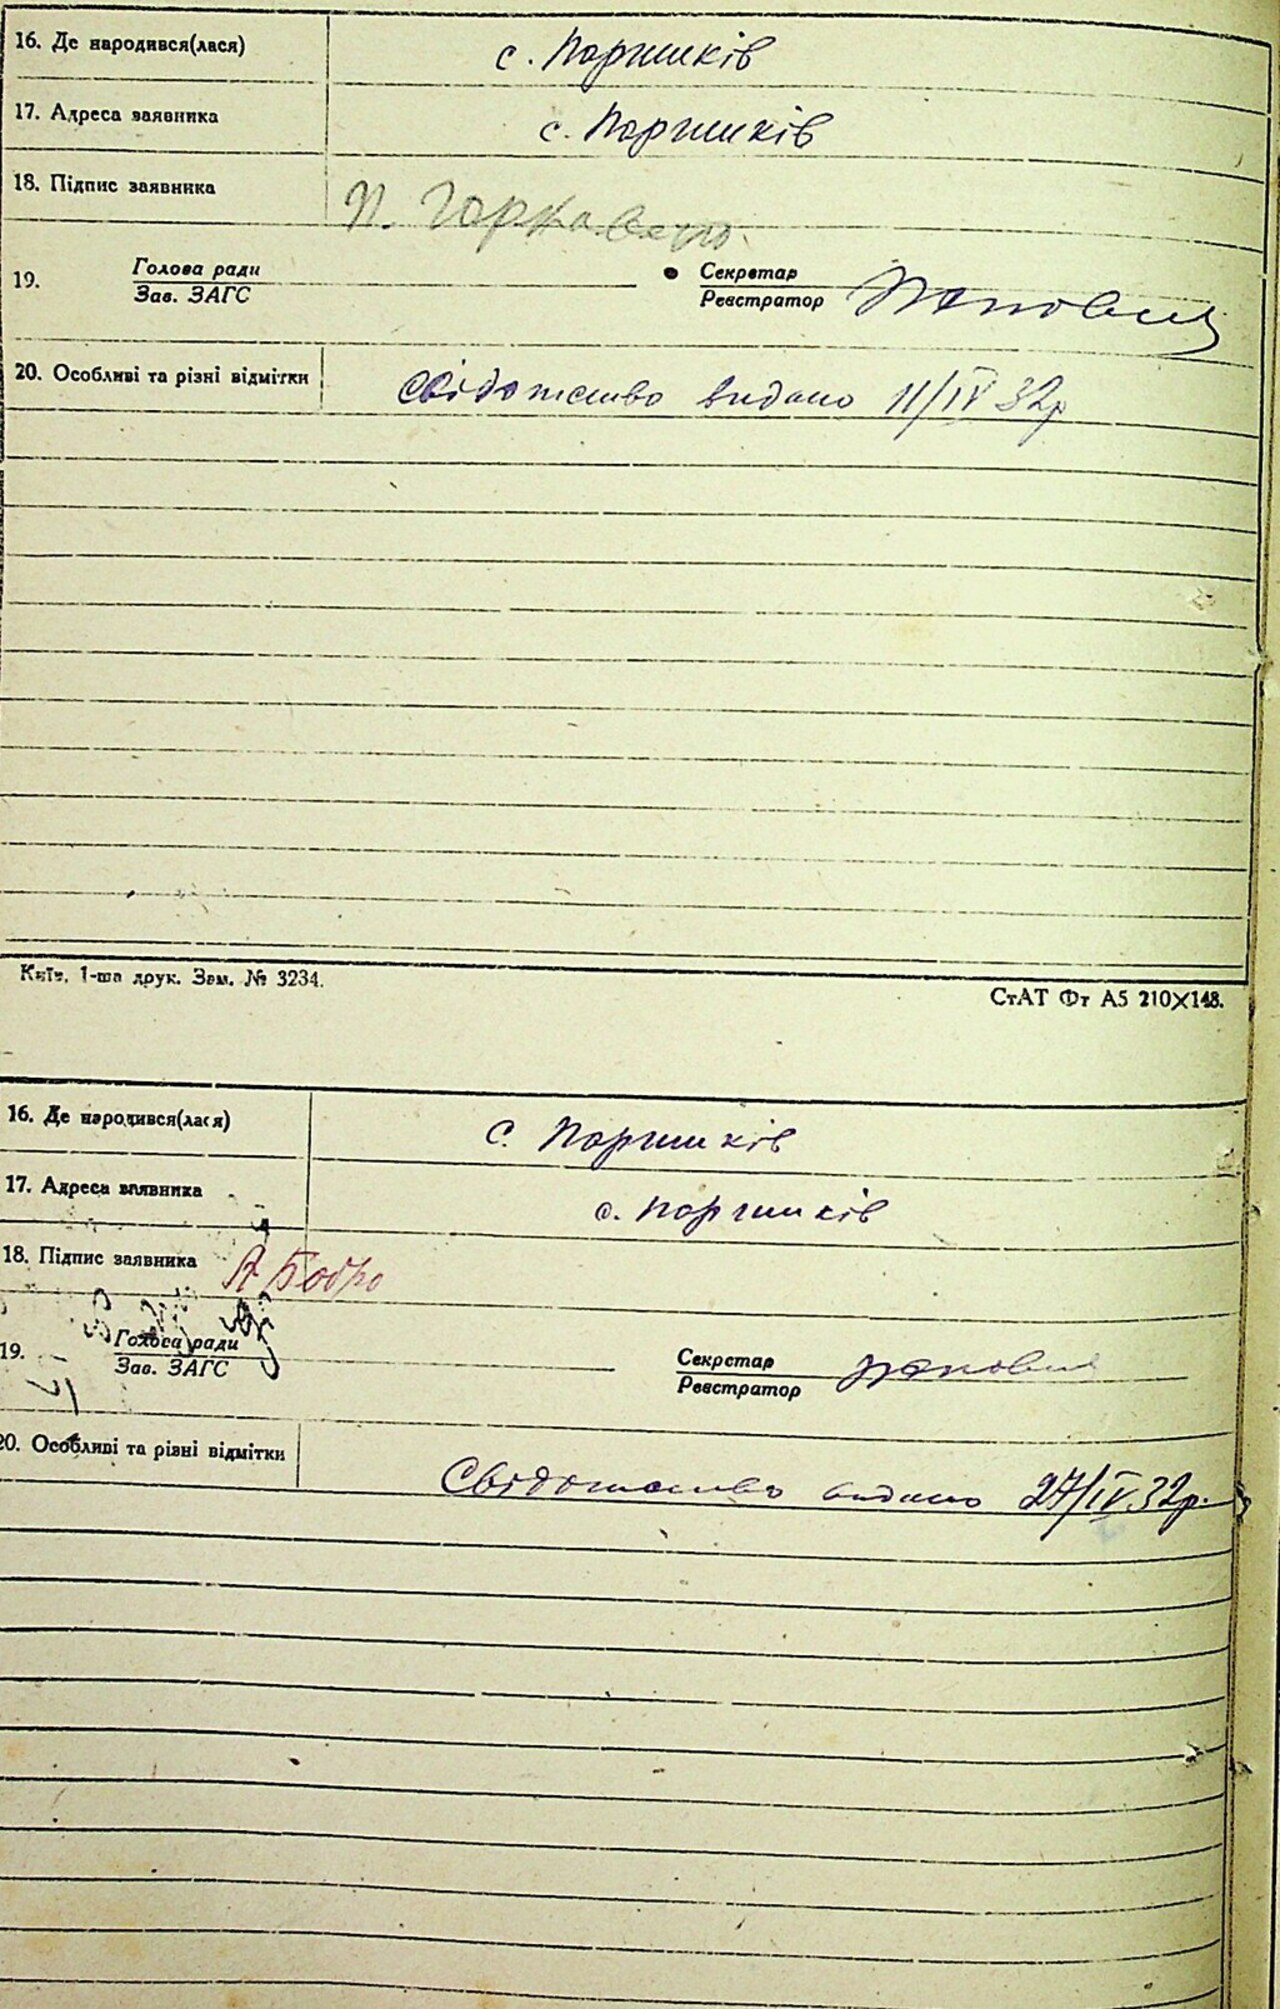 16. Де народився(лася) с. Паришків
17. Адреса заявника с. Паришків
18. Підпис заявника П. Горкавенко
19. Голова ради Секретар
Зав. ЗАГС Реєстратор
20. Особливі та різні відмітки Свідотство видано 11/IV 32р
Київ, 1-ша друк. Зам. № 3234.
СтАТ Фт А5 210X148.
16. Де народився(лася) с. Паришків
17. Адреса заявника с. Паришків
18. Підпис заявника
19. Голова ради Секретар
Зав. ЗАГС Реєстратор
20. Особливі та різні відмітки Свідотство видано 27/IV 32р.